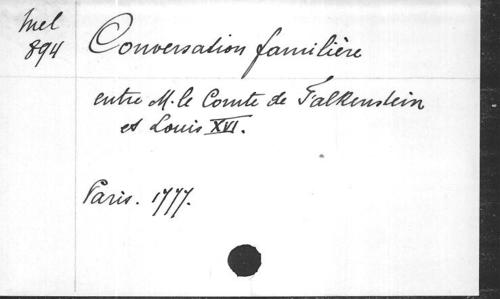 Mel
894
Conversation familière
entre M. le Comte de Falkenstein
et Louis XVI.
Paris. 1777.